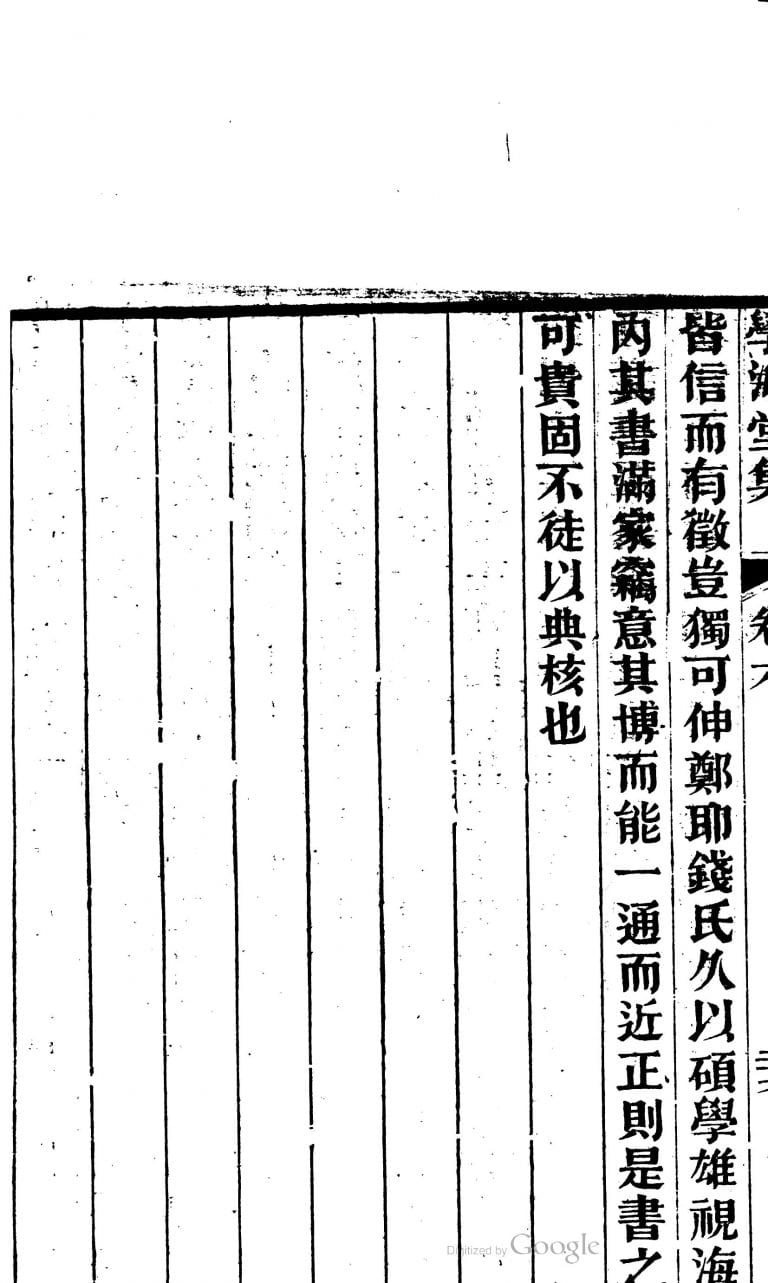 學海堂集 卷六
皆信而有徵豈獨可伸鄭耶錢氏久以碩學雄視海
內其書滿家竊意其博而能一通而近正則是書之
可貴固不徒以典核也
Digitized by Google